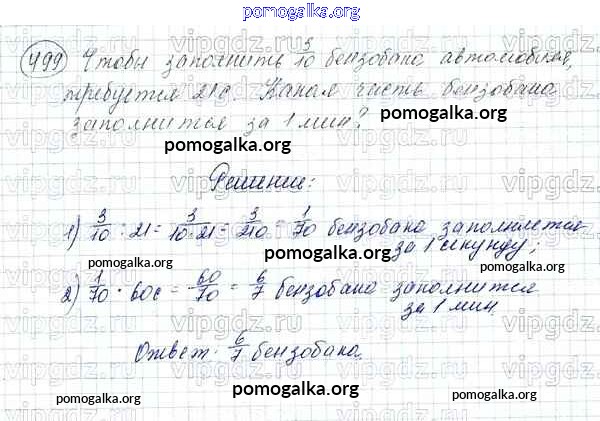 pomogalka.org
499 Чтобы заполнить 3/10 бензобака автомобиля,
требуется 21с. Какая часть бензобака
pomogalka.org
заполнится за 1 мин?
pomogalka.org
Решение:
1) 3/10 : 21 = 3/(10·21) = 3/210 = 1/70 бензобака заполняется
за 1 секунду;
pomogalka.org
pomogalka.org
2) 1/70 · 60с = 60/70 = 6/7 бензобака заполнится
за 1 мин.
pomogalka.org
pomogalka.org
Ответ: 6/7 бензобака.
pomogalka.org
pomogalka.org
pomogalka.org